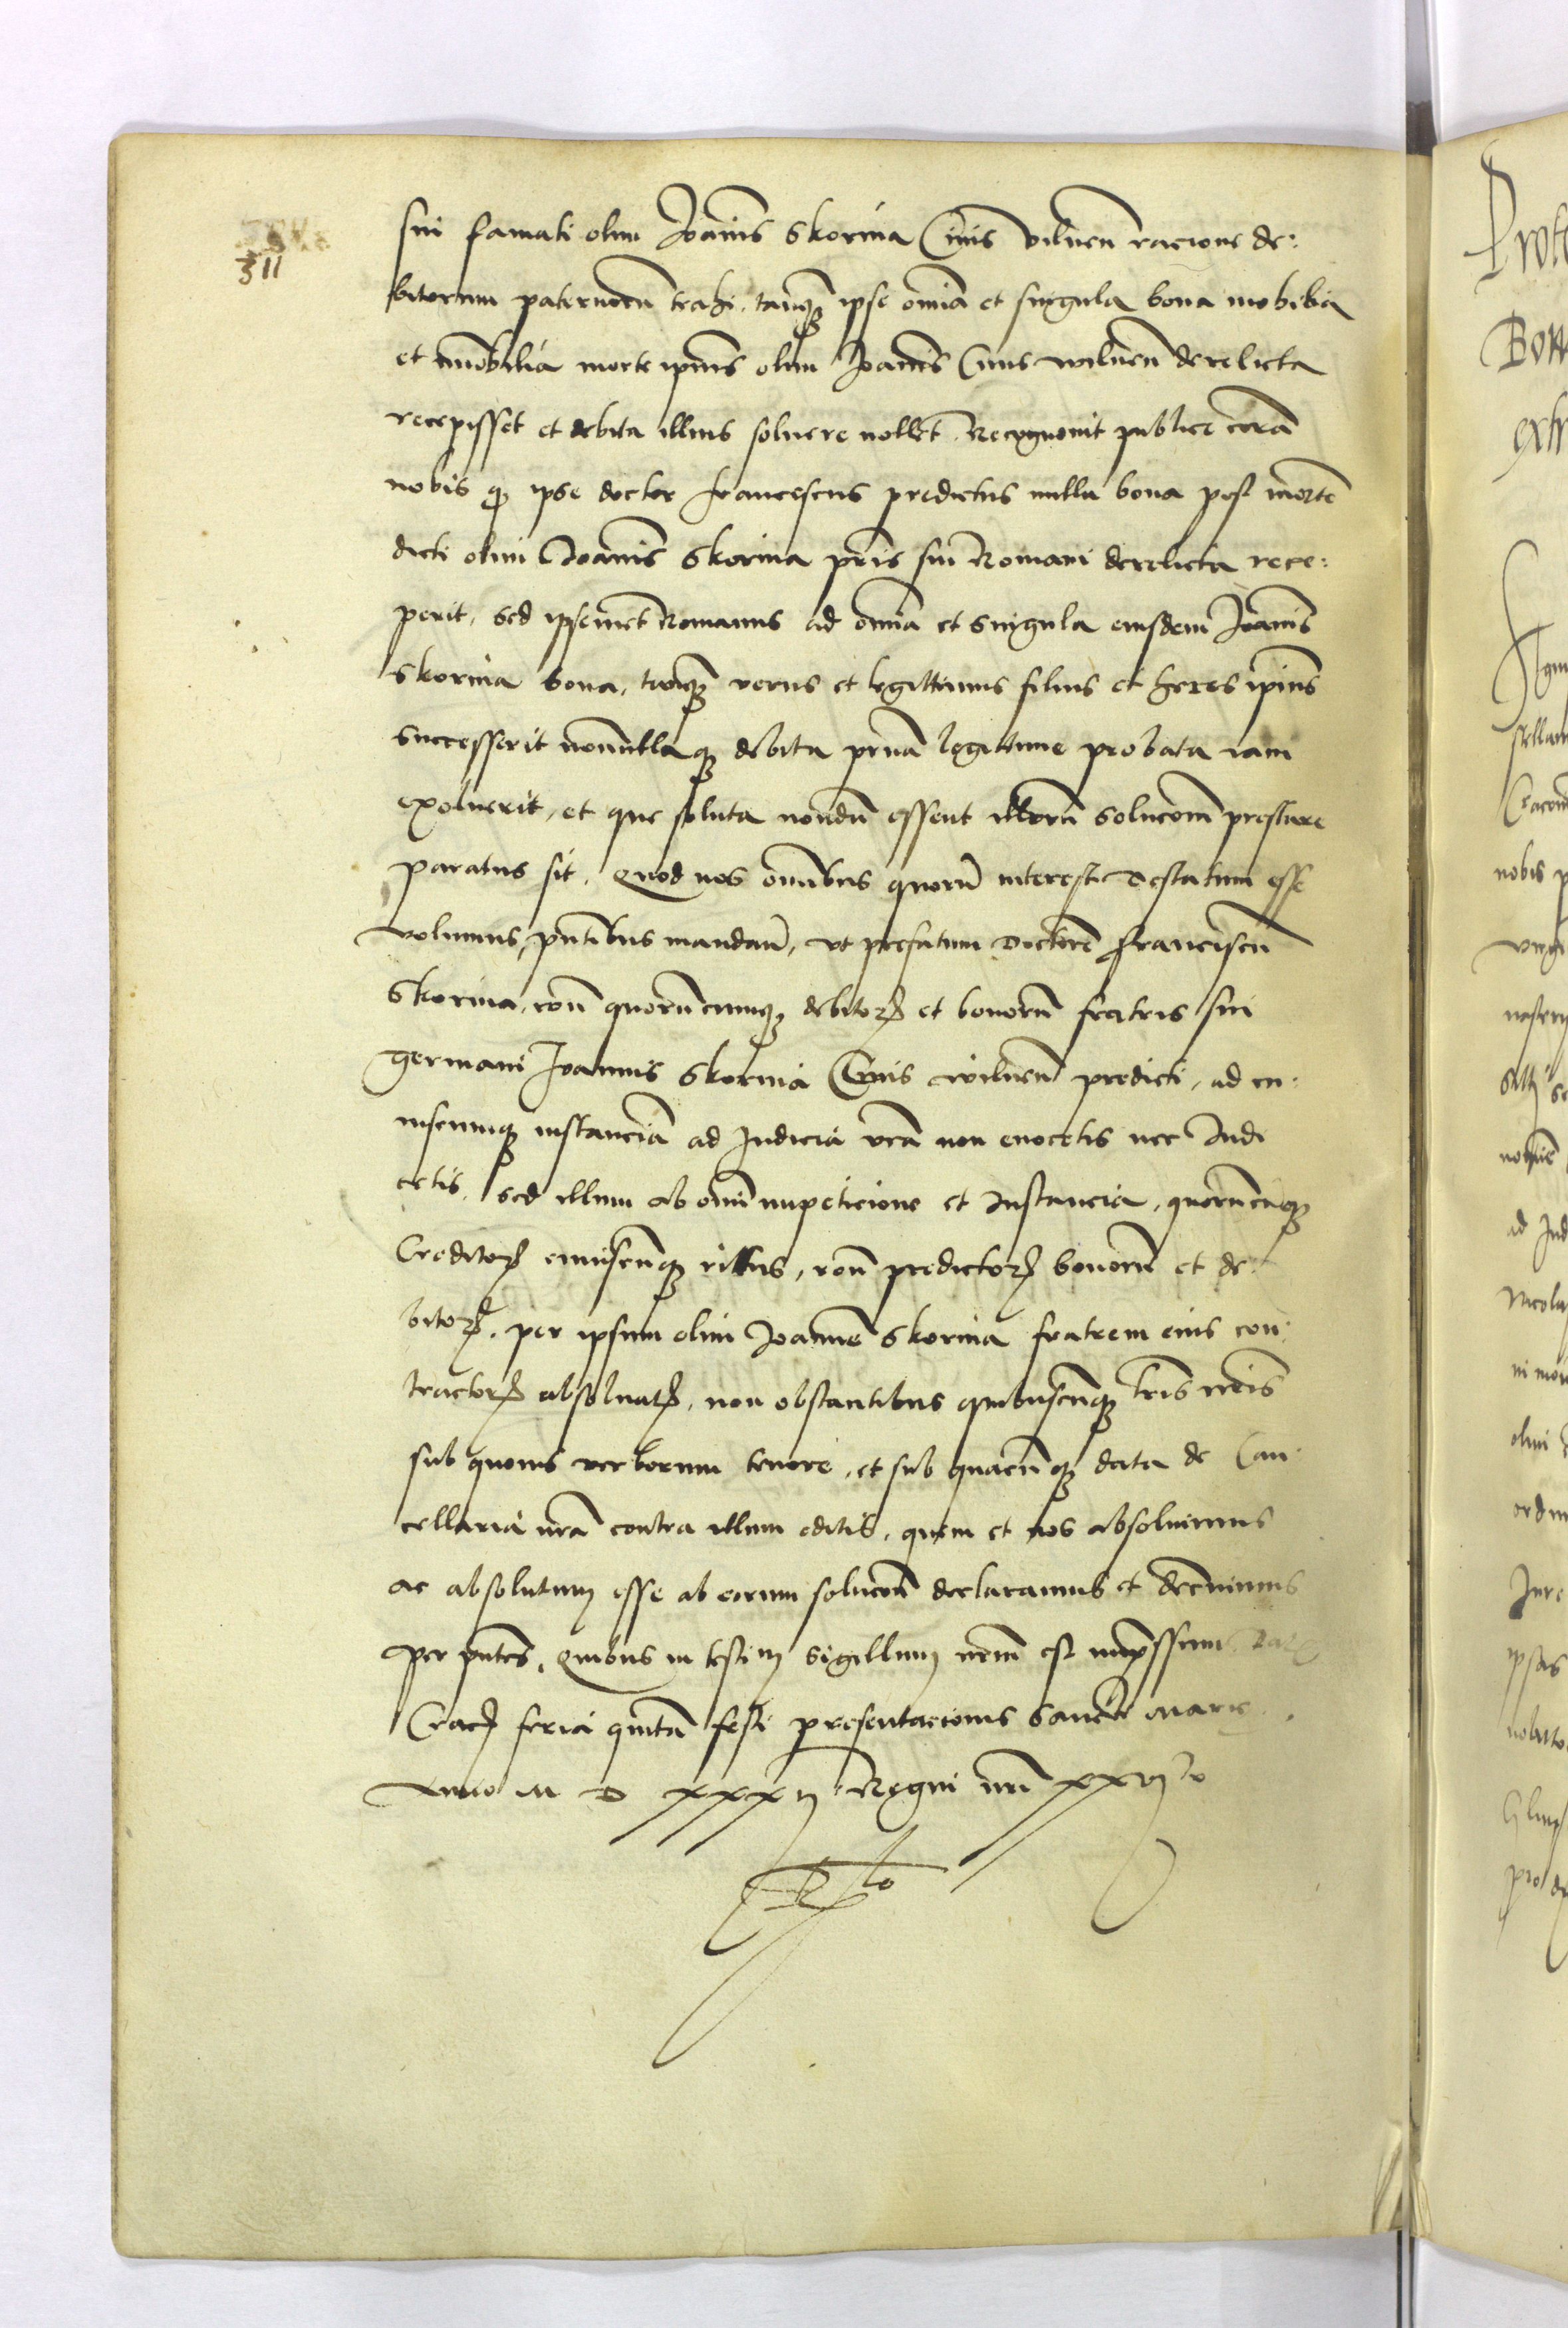 311
sui famati olim Joānis Skorina Ciuis Vilnen̄ racione de:
bitorum paternorū trahi, tanq̄ȝ ipse om̄ia et singula bona mobilia
et im̄obilia morte ip̄ius olim Joanīs Ciuis wilnen̄ derelicta
recepisset et debita illius soluere nollet. Recognouit publice corā
nobis q̄ ipse doctor franciscus predictus nulla bona post mortē
dicti olim Joannis Skorina pr̄is sui Romani derelicta rece:
perit, sed ipsemet Romanus ad om̄ia et singula eiusdem Joānis
Skorina bona, tanq̄ȝ verus et legittimus filius et heres ip̄ius
successerit nonnullaqȝ debita pr̄na legittime probata iam
exoluerit, et que soluta nondū essent illorū solucōm prestare
paratus sit. Quod nos om̄ibus quorū interest testatum esse
volumus, p̄ntibus mandan̄, vt prefatum doctorē franciscū
Skorina, rōn̄ quorūcumqȝ debitoꝝ et bonorū fratris sui
germani Joannis Skorina Ciuis wilnen̄ predicti, ad cu:
iuscumqȝ instanciā ad Judicia vr̄a non euocetis nec Judi
cetis, sed illum ab om̄i impeticione et Instancia, quorūcūqȝ
Creditoꝝ cuiuscūqȝ rittus, rōn̄ predictoꝝ bonorū et de:
bitoꝝ, per ipsum olim Joannē Skorina fratrem eius con:
tractoꝝ absoluatꝭ, non obstantibus quibuscūqȝ lr̄is nr̄is
sub quouis verborum tenore, et sub quacūqȝ data de Can:
cellaria nr̄a contra illum editis, quem et nos absoluimus
ac absolutum esse ab eorum solucōn̄ declaramus et decernimus
per p̄ntes, Quibus in testim̄ Sigillum nr̄m est impssum Dat
Crac̄ feria quinta festi presentacionis Sancte Marie
Anno M D xxxij Regni nr̄i xxvjto